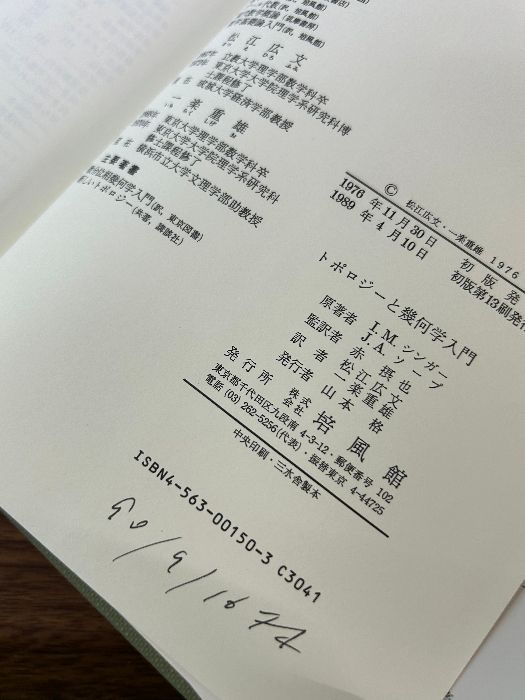 松江広文
まつ え ひろ ふみ
立教大学理学部数学科卒
東京大学大学院理学系研究科博
士課程修了
成城大学経済学部教授
一楽重雄
いち らく しげ お
東京大学理学部数学科卒
東京大学大学院理学系研究科
修士課程修了
横浜市立大学文理学部助教授
主要著書
微分位相幾何学入門(訳, 東京図書)
新しいトポロジー(共著, 講談社)
© 松江広文・一楽重雄 1976
1976 年 11 月 30 日 初版発
1989 年 4 月 10 日 初版第13刷発行
トポロジーと幾何学入門
原著者 I.M. シンガー
J.A. ソープ
監訳者 赤 摂也
訳者 松江広文
一楽重雄
発行者 山本 格
発行所 株式会社 培風館
東京都千代田区九段南 4-3-12・郵便番号 102
電話 (03) 262-5256(代表)・振替東京 4-44725
中央印刷・三水舎製本
ISBN4-563-00150-3 C3041
90/9/16